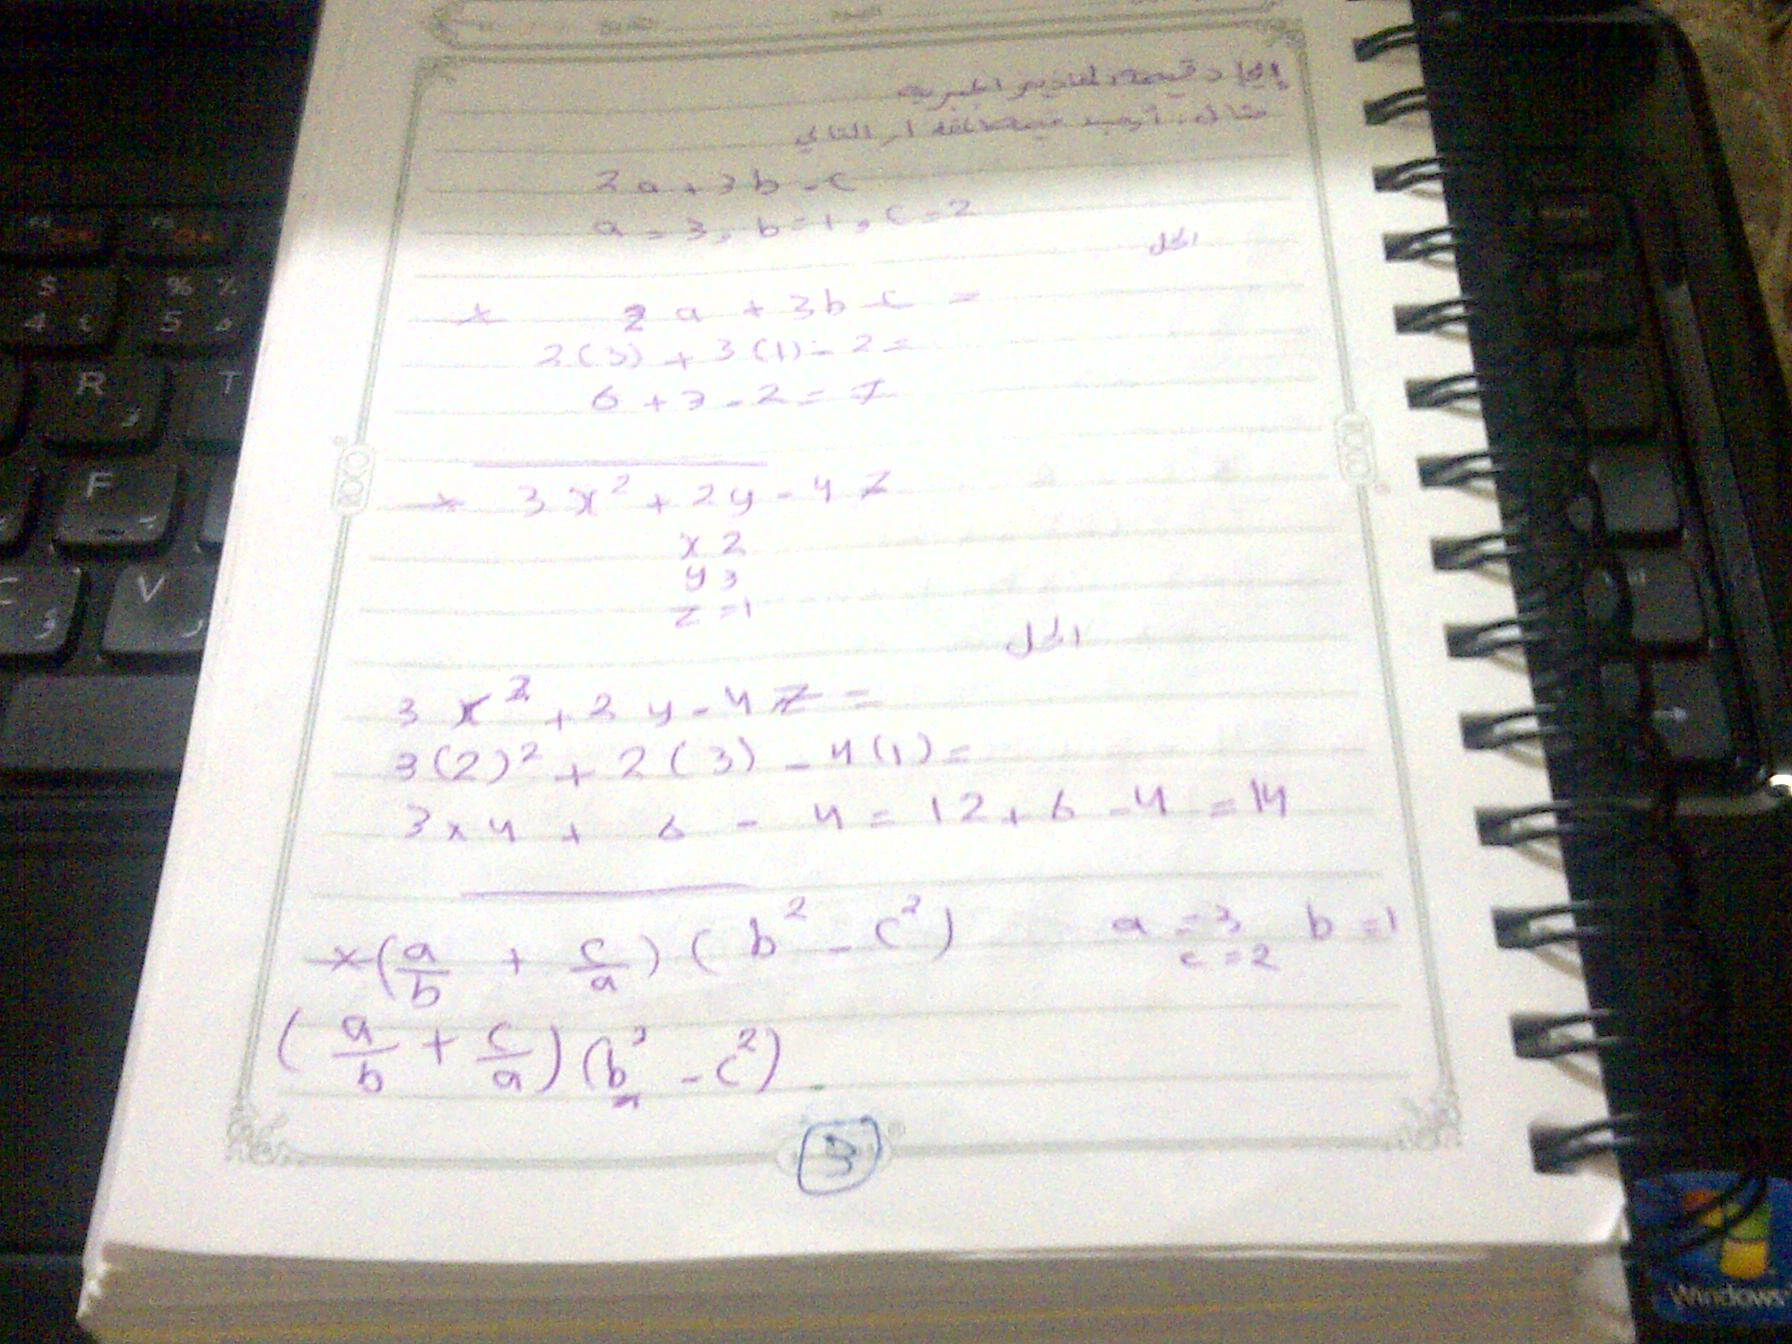 إيجاد قيمة المقادير الجبرية
مثال: أوجد قيمة المقدار التالي
2a + 3b - c
a = 3, b = 1, c = 2
الحل
* 2a + 3b - c =
2(3) + 3(1) - 2 =
6 + 3 - 2 = 7
* 3x² + 2y - 4z
x 2
y 3
z = 1
الحل
3x² + 2y - 4z =
3(2)² + 2(3) - 4(1) =
3 × 4 + 6 - 4 = 12 + 6 - 4 = 14
* (a/b + c/a) (b² - c²) a = 3 b = 1
c = 2
(a/b + c/a) (b² - c²)
3
ROCO
ROCO
$ % ٪
4 ٤ 5 ٥
R T
F
C V
Windows